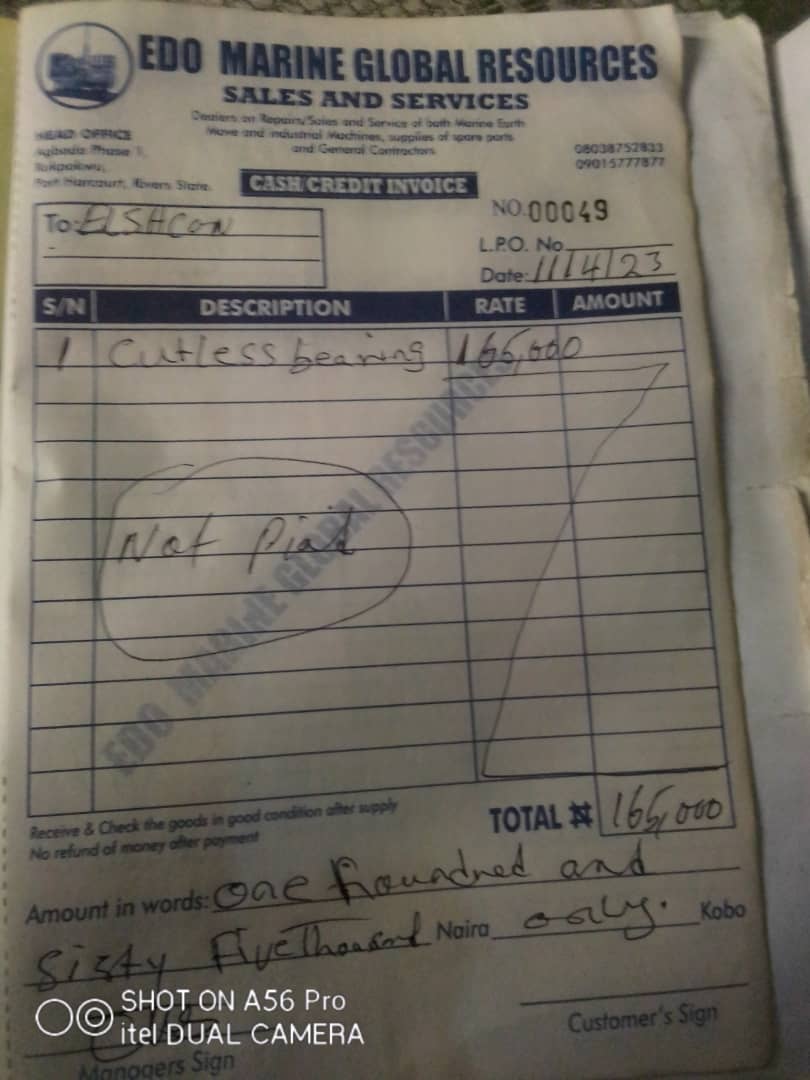 EDO MARINE GLOBAL RESOURCES
SALES AND SERVICES
Dealers on Repairs/Sales and Service of both Marine Earth
Move and industrial Machines, supplies of spare parts
and General Contractors
HEAD OFFICE
Phase 1,
Port Harcourt, Rivers State.
08038752833
09015777877
CASH/CREDIT INVOICE
NO. 00049
To: ELSHCON
L.P.O. No
Date: 11/4/23
S/N DESCRIPTION RATE AMOUNT
1 Cutless bearing 165,000
Not Piad
EDO MARINE GLOBAL RESOURCES
Receive & Check the goods in good condition after supply
No refund of money after payment
TOTAL ₦ 165,000
Amount in words: One houndred and
Sixty Five Thousand Naira only. Kobo
SHOT ON A56 Pro
itel DUAL CAMERA
Managers Sign
Customer's Sign